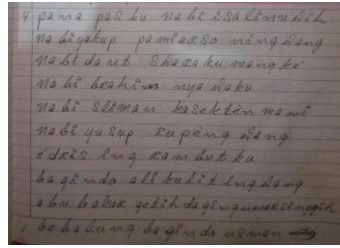 4 pana pas ku nabi isa linuwih
nabi yakup pamiarso ningwang
nabi daut swaraku mangke
nabi brahim nyawaku
nabi sliman kasekten mami
nabi yusup rupeng wang
édris ing rambut ku
baginda ali kulit ing wang
abu bakar getih daging umar singgih
1. babalung baginda usman